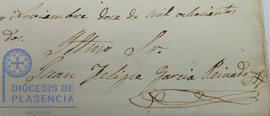 Noviembre doce de mil ochocientos
Yltmo Sr.
Juan Felipe Garcia Reinado
DIÓCESIS DE
PLASENCIA